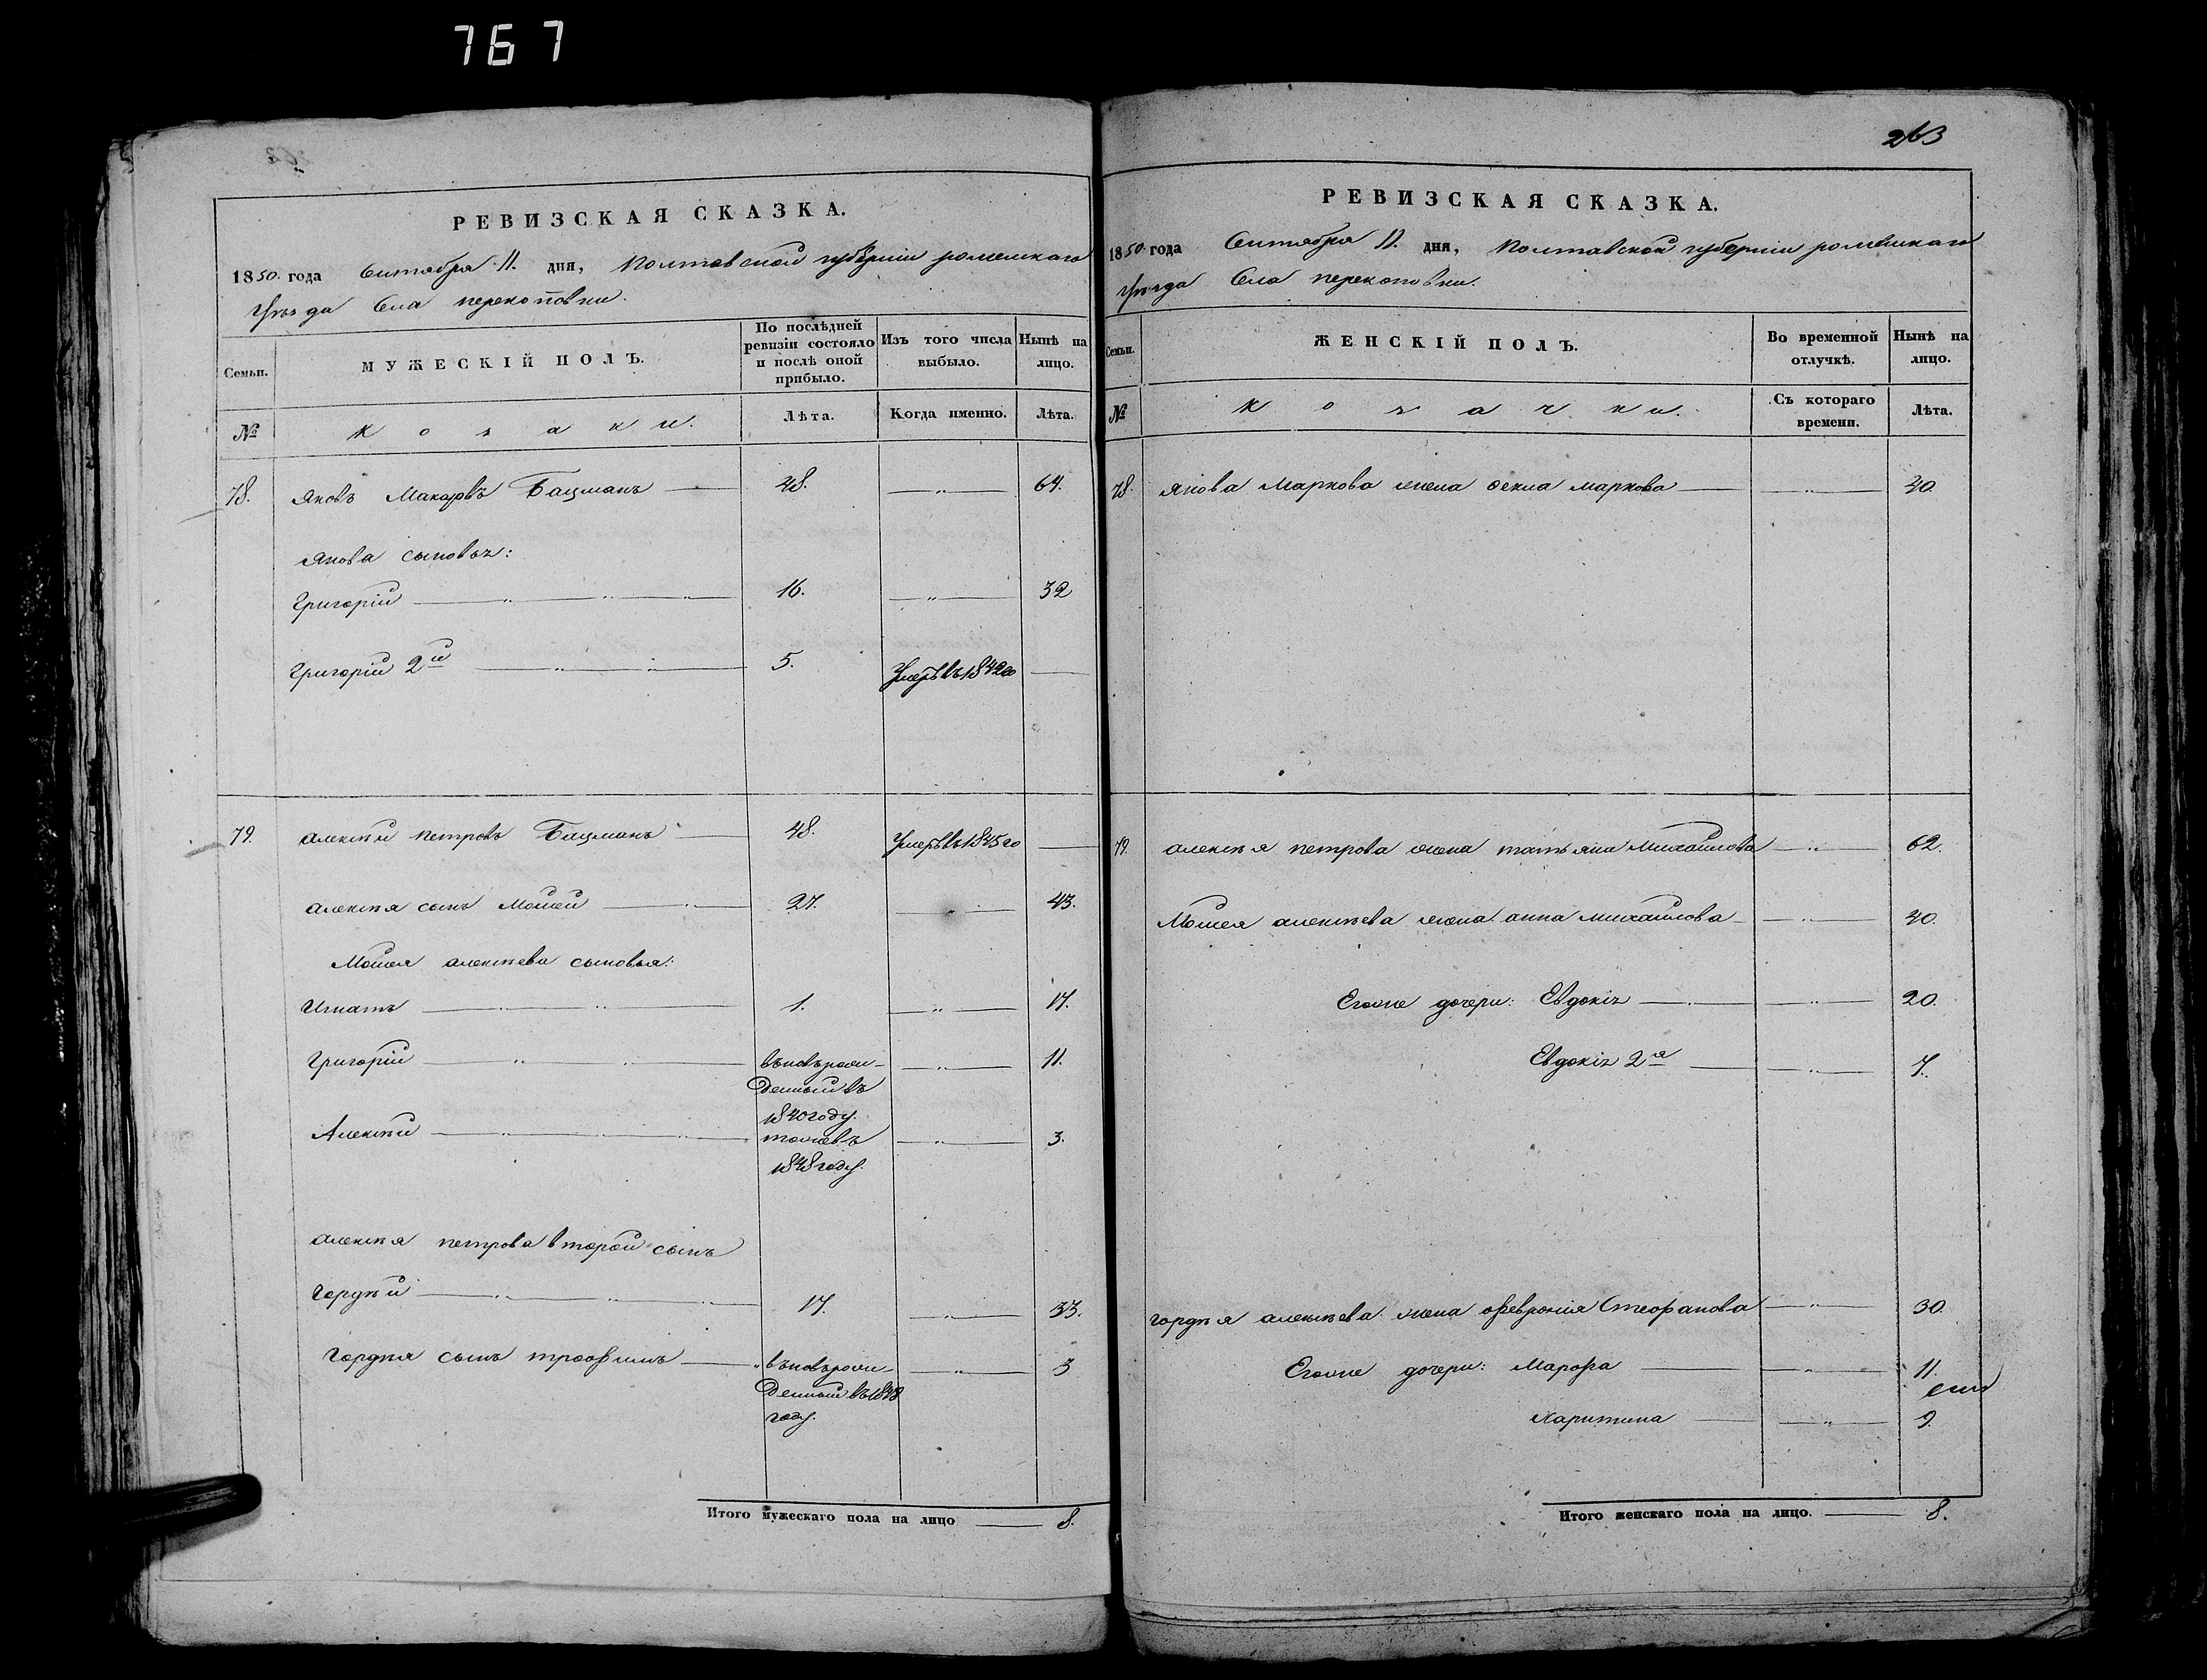 767
РЕВИЗСКАЯ СКАЗКА.
1850. года Сентября 11. дня, Полтавской губерніи роменскаго
уѣзда Села перекоповки.
Семьи.
МУЖЕСКІЙ ПОЛЪ.
По послѣдней ревизіи состояло и послѣ оной прибыло.
Изъ того числа выбыло.
Нынѣ на лицо.
№
Козаки.
Лѣта.
Когда именно.
Лѣта.
78. Яковъ Макаровъ Бацманъ — 48. — „ — 64.
Якова сыновья:
Григорій — „ — „ — „ — 16. — „ — 32
Григорій 2й — „ — „ — 5. Умеръ въ 1842го —
79. алексѣй петровъ Бацманъ — 48. Умеръ въ 1845го —
алексѣя сынъ Мойсей — „ — 27. — „ — 43.
Мойсея алексѣева сыновья:
Игнатъ — „ — „ — 1. — „ — 17.
Григорій — „ — „ — въновърож- — „ — 11.
денный въ
1840году.
Алексѣй — „ — „ — „ — тожевъ — „ — 3.
1848году.
алексѣя петрова второй сынъ
Гордѣй — „ — „ — 17. — „ — 33.
Гордѣя сынъ трофимъ — „въновърож- — „ — 3
денный въ 1848
году.
Итого мужескаго пола на лицо — 8.
263
РЕВИЗСКАЯ СКАЗКА.
1850. года Сентября 11. дня, Полтавской губерніи роменскаго
уѣзда Села перекоповки.
Семьи.
ЖЕНСКІЙ ПОЛЪ.
Во временной отлучкѣ.
Нынѣ на лицо.
№
Козачки.
Съ котораго времени.
Лѣта.
78. Якова Маркова жена Фекла маркова — „ — 40.
79. алексѣя петрова жена татьяна Михайлова — „ — 62.
Мойсея алексѣева жена анна михайлова — „ — 40.
Егоже дочери: Евдокія — „ — „ — 20.
Евдокія 2я — „ — 7.
гордѣя алексѣева жена февронія Стефанова — „ — 30.
Егоже дочери: Марфа — „ — 11.
Харитина — „ — 9.
Итого женскаго пола на лицо. — 8.